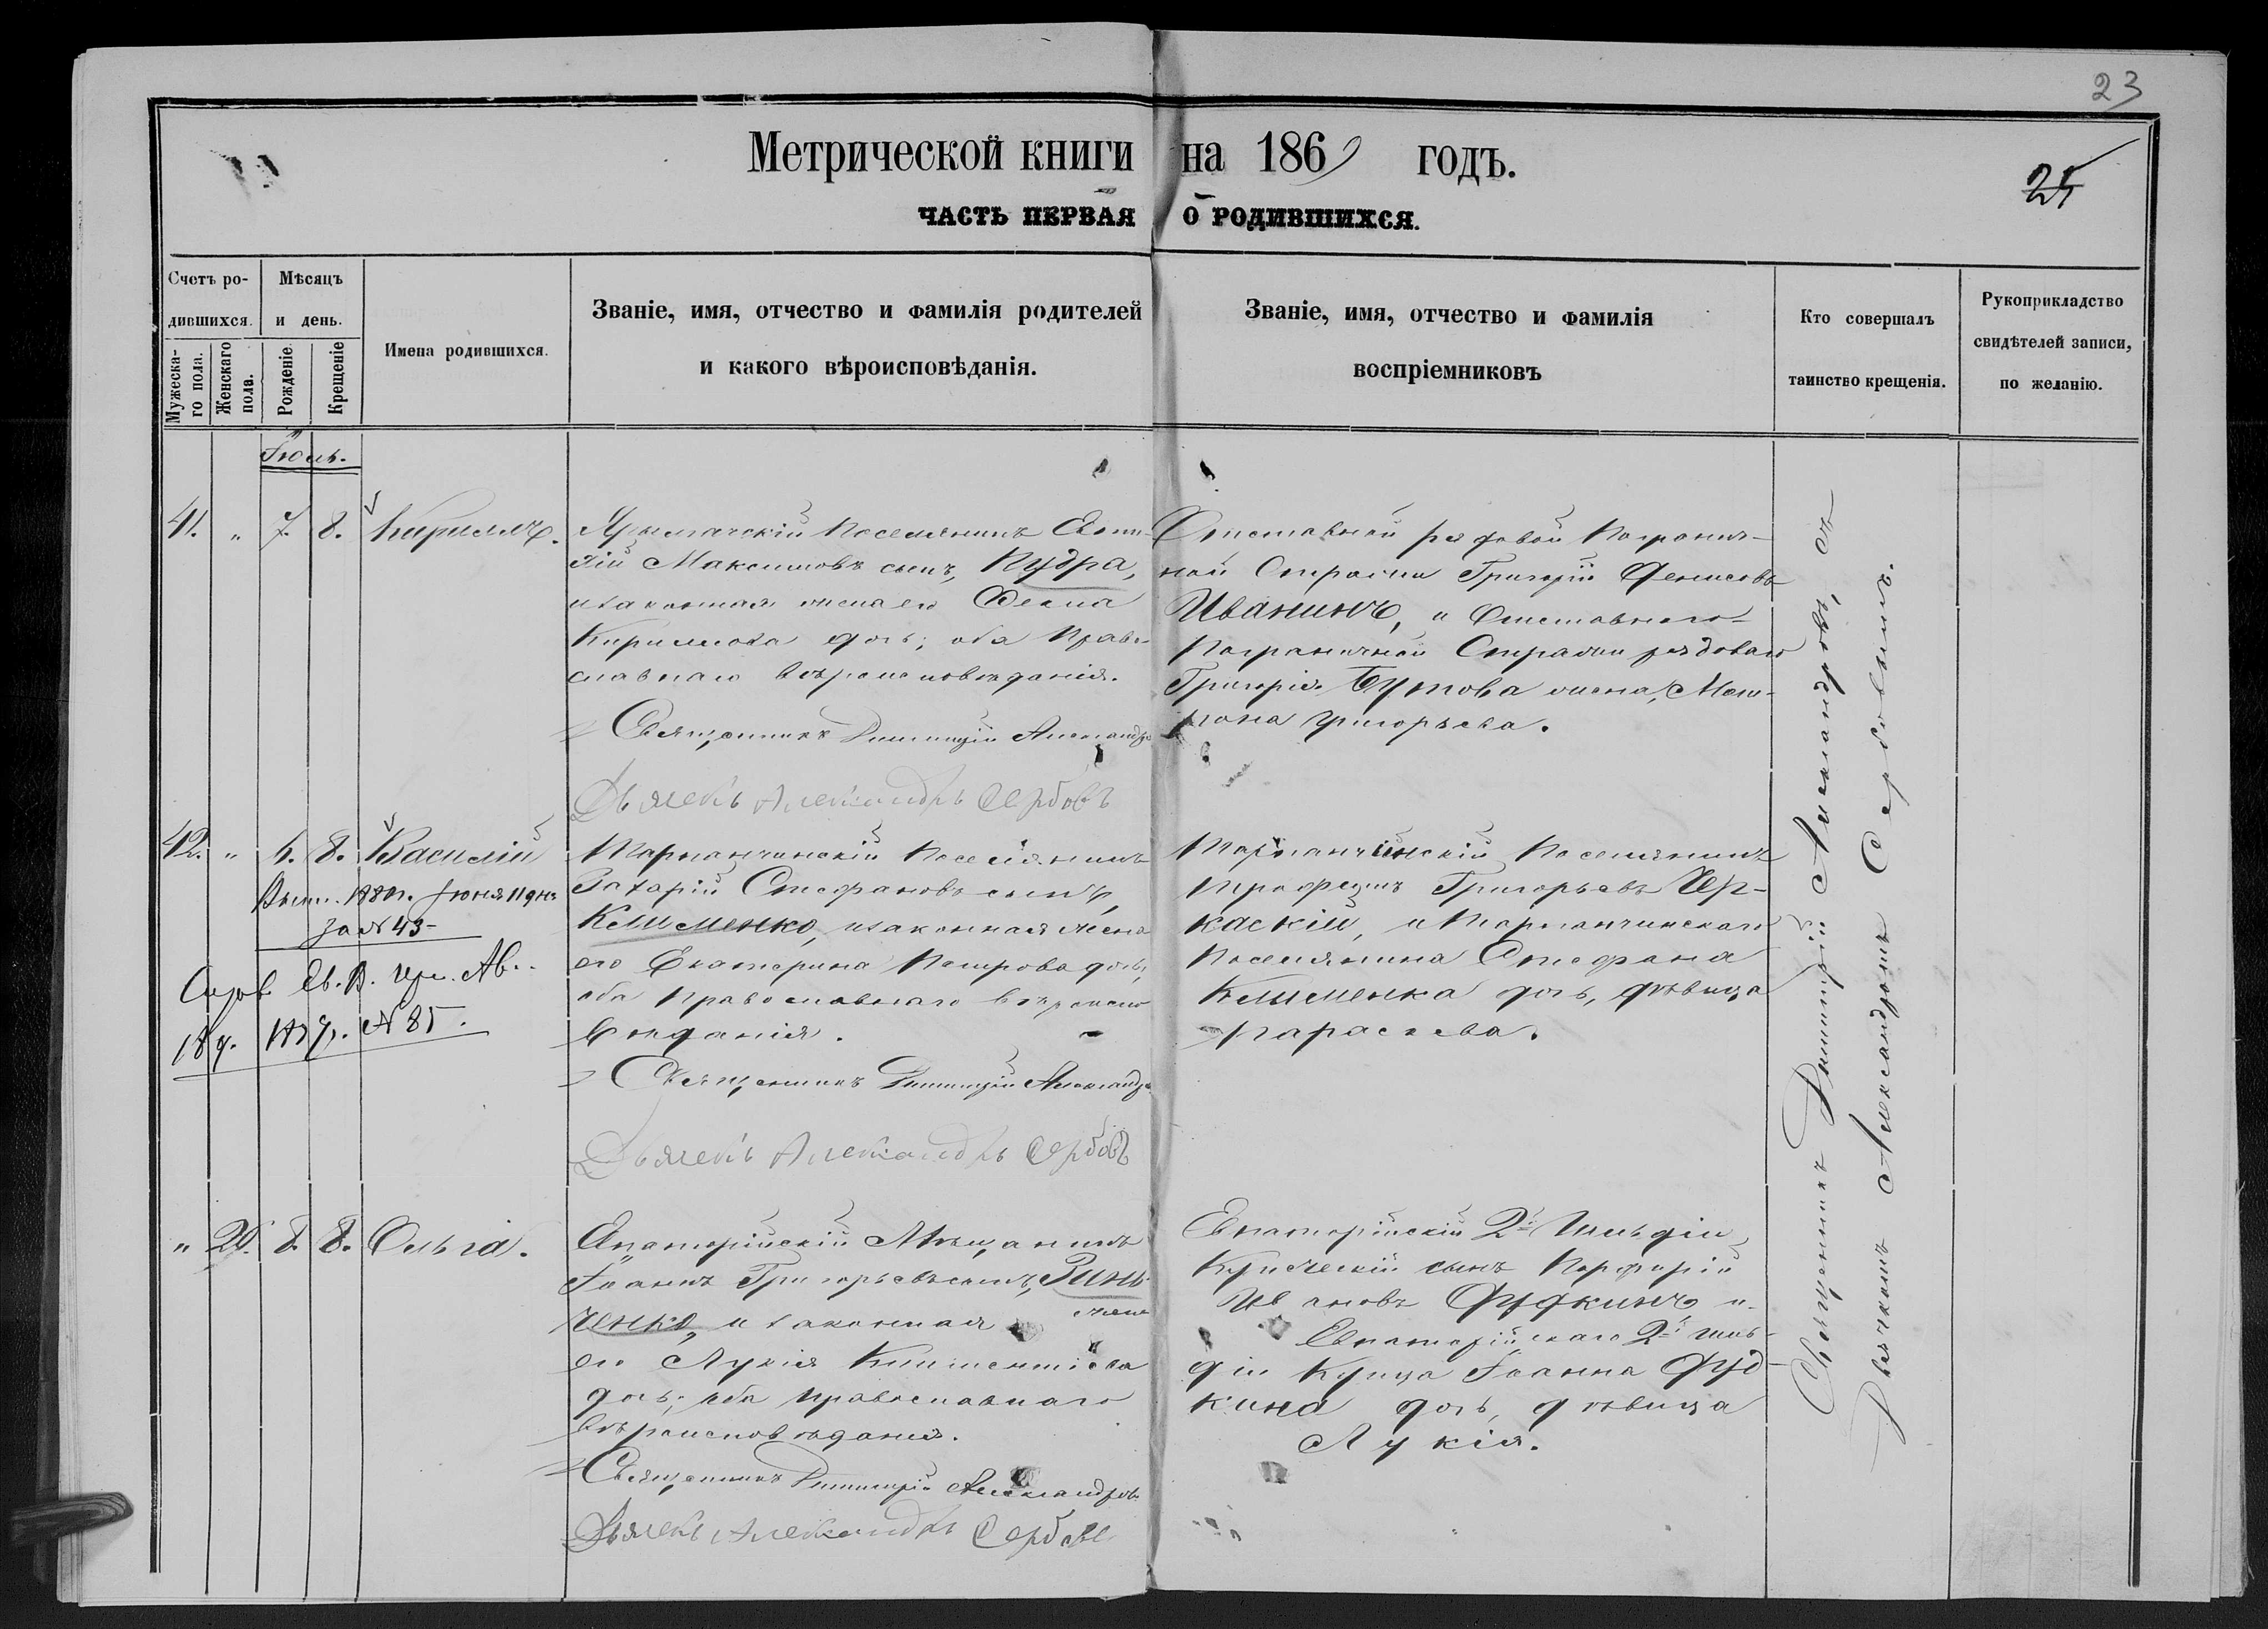 23
Метрической книги на 1869 годъ.
25
ЧАСТЬ ПЕРВАЯ О РОДИВШИХСЯ.
Счетъ родившихся.
Мужескаго пола.
Женскаго пола.
Мѣсяцъ и день.
Рожденіе.
Крещеніе
Имена родившихся.
Званіе, имя, отчество и фамилія родителей
и какого вѣроисповѣданія.
Званіе, имя, отчество и фамилія
воспріемниковъ
Кто совершалъ
таинство крещенія.
Рукоприкладство
свидѣтелей записи,
по желанію.
Іюль.
41. " 7. 8. Кириллъ.
Поселянинъ
Максимовъ сынъ, Кудра,
и законная жена его Ѳекла
Кириллова дочь; оба Право-
славнаго вѣроисповѣданія.
Священникъ Димитрій Александровъ
Дьячекъ Александръ Сербовъ
Отставной рядовой Погранич-
ной Стражи Григорій Денисовъ
Иванинъ, и Отставнаго
Пограничной Стражи рядоваго
Григорія Бутова жена, Мат-
рона Григорьева.
42. " 8. Василій
Вып. 1880г. Іюня 11 дня
за № 43-
№ 85.
Тарханчинскій Поселянинъ
Захарій Стефановъ сынъ,
Клименко, и законная жена
его Екатерина Петрова дочь,
оба Православнаго вѣроиспо
вѣданія.
Священникъ Димитрій Александровъ
Дьячекъ Александръ Сербовъ
Тарханчинскій Поселянинъ
Трофимъ Григорьевъ Чер-
каскій, и Тарханчинскаго
Поселянина Стефана
Клименка дочь, дѣвица
Параскева.
" 29. 8. 8. Ольга.
Евпаторійскій Мѣщанинъ
Іоаннъ Григорьевъ сынъ, Зинь-
ченко, и законная жена
его Лукія Климентіева
дочь; оба православнаго
вѣроисповѣданія.
Священникъ Димитрій Александровъ
Дьячекъ Александръ Сербовъ
Евпаторійскій 2й Гильдіи
Купеческій сынъ Порфирій
Ивановъ Дудкинъ и
Евпаторійскаго 2й гиль-
діи Купца Іоанна Дуд-
кина дочь, дѣвица
Лукія.
Священникъ Димитрій Александровъ, съ
Дьячкомъ Александромъ Сербовымъ.